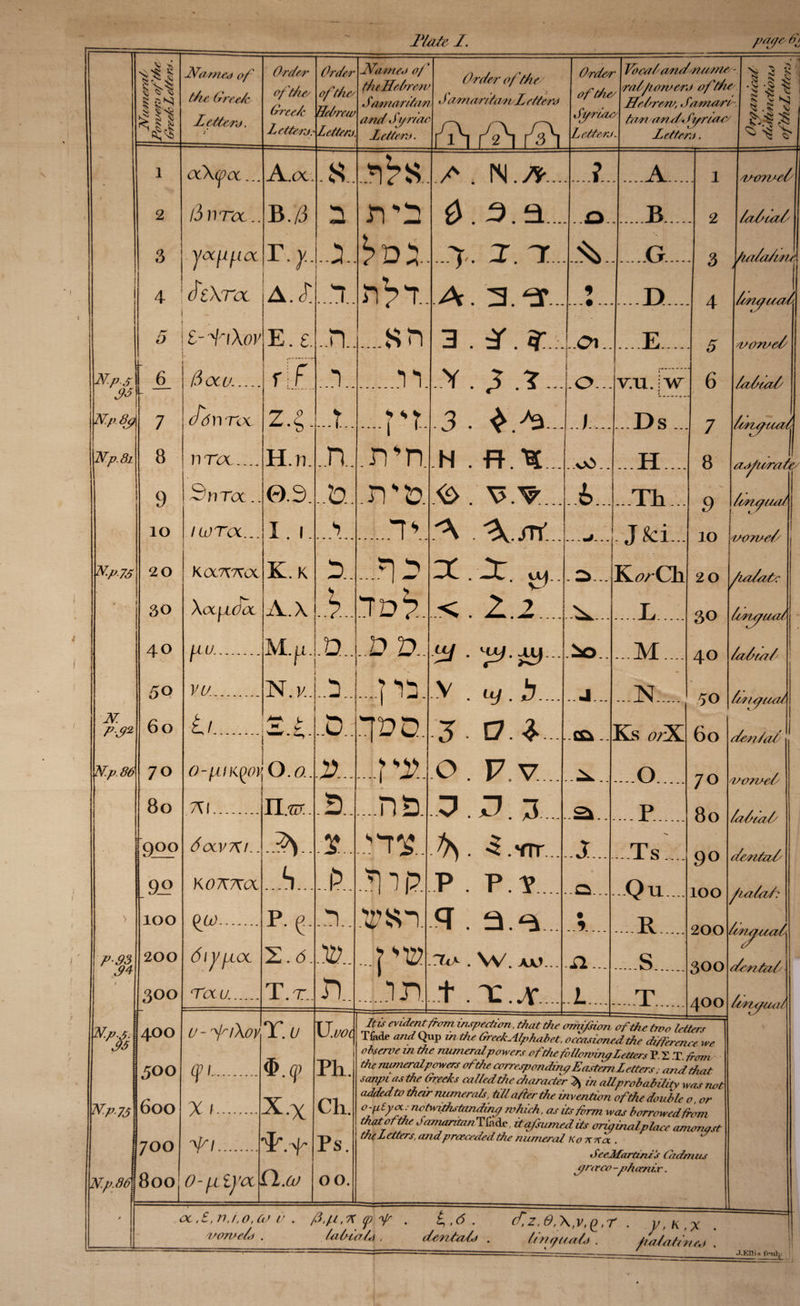 Plate I.
page 6
Numeral Powers of the Greek Letters. Names of the Greek Letters. Order of the Greek Letters. Order of the Hebrew Letters. Names of the Hebrew Samaritan and Syriac Letters. Order of the Samaritan Letters 1 2 3 Order of the Syriac Letters. Vocal and numeral powers of the Hebrew, Samaritan and Syriac Letters. Organical distinctions of the Letters.
1 αλφα... Α.α. א אלפ A 1 vowel
2 βητα.. Β.β ב בית B 2 labial
3 γαμμα Γ.γ. ג גמל G 3 palatine
4 δελτα Δ.δ. ד דלת D 4 lingual
5 ε-ψιλον Ε.ε. ה הא E 5 vowel
N.p.5. 95 6 βαυ..... ϝ F ו וו v.u. w 6 labial
N.p.89 7 δδητα Ζ.ζ. ז זין Ds 7 lingual
N.p.81 8 ητα.... Η.η. ח חית H 8 aspirate
9 θητα.. Θ.θ. ט טית Th 9 lingual
10 ιωτα... Ι.ι י יד J &i 10 vowel
N.p.75 20 καππα Κ.κ כ כף K or Ch 20 palat:
30 λαμδα Λ.λ ל למד L 30 lingual
40 μυ...... Μ.μ. מ מם M 40 labial
50 νυ....... Ν.ν. נ נון N 50 lingual
N. p.92 60 ξι....... Ξ.ξ. ס סמך Ks or X 60 dental
N.p.86 70 ο-μικρον Ο.ο. ע עין O 70 vowel
80 πι....... Π.ϖ. פ פה P 80 labial
900 σανπι.. ϡ צ צדי Ts 90 dental
90 κοππα ק קוף Qu 100 palat:
100 ρω...... Ρ.ρ. ר ראש R 200 lingual
p.93 94 200 σιγμα Σ.σ. ש שין S 300 dental
300 ταυ..... Τ.τ. ת תו T 400 lingual
N.p.5. 95 400 υ-ψιλον Υ.υ U.voc
500 φι....... Φ.φ Ph.
N.p.75 600 χι....... Χ.χ Ch.
700 ψι....... Ψ.ψ Ps.
N.p.86 800 ο-μεγα Ω.ω oo.
It is evident from inspection, that the omission of the two letters
Tsade and Qup in the Greek Alphabet, occasioned the difference we
observe in the numeral powers of the following Letters Ρ.Σ.Τ. from
the numeral powers of the corresponding Eastern Letters; and that
sanpi as the Greeks called the character ϡ in all probability was not
added to their numerals, till after the invention of the double o, or
ο-μεγα: notwithstanding which, as its form was borrowed from
that of the Samaritan Tsade, it assumed its original place amongst
the Letters, and præceded the numeral κοππα.
See Martini's Cadmus
græco-phænix.
α, ε, η, ι, ο, ω υ . β, μ, π φ ψ . ξ, σ . δ, ζ, θ, λ, ν, ρ, τ . γ, κ, χ .
vowels . labials . dentals . linguals . palatines .
J. Ellis sculp.